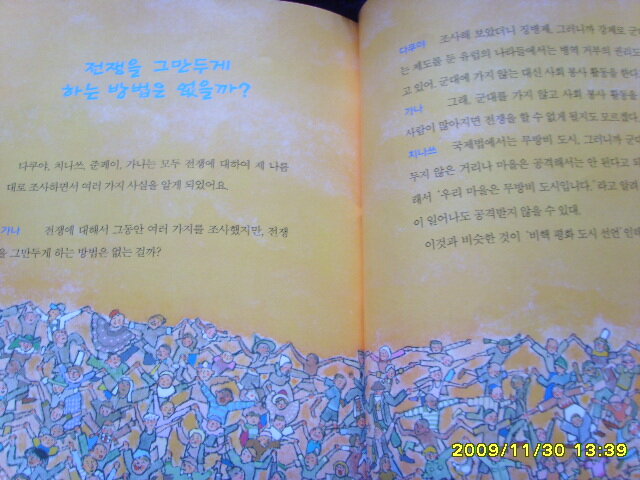 전쟁을 그만두게
하는 방법은 없을까?
다쿠야, 치나쓰, 준페이, 가나는 모두 전쟁에 대하여 제 나름
대로 조사하면서 여러 가지 사실을 알게 되었어요.
가나 전쟁에 대해서 그동안 여러 가지를 조사했지만, 전쟁
을 그만두게 하는 방법은 없는 걸까?
다쿠야 조사해 보았더니 징병제, 그러니까 강제로 군대
는 제도를 둔 유럽의 나라들에서는 병역 거부의 권리도
고 있어. 군대에 가지 않는 대신 사회 봉사 활동을 한다
가나 그래, 군대를 가지 않고 사회 봉사 활동을
사람이 많아지면 전쟁을 할 수 없게 될지도 모르겠다
치나쓰 국제법에서는 무방비 도시, 그러니까 군
두지 않은 거리나 마을은 공격해서는 안 된다고 되
래서 '우리 마을은 무방비 도시입니다.'라고 알려
이 일어나도 공격받지 않을 수 있대.
이것과 비슷한 것이 '비핵 평화 도시 선언'인데
2009/11/30 13:39